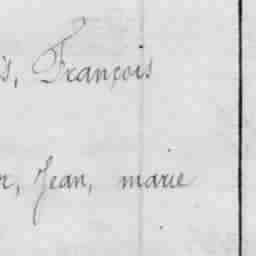 s, François
r, Jean, marie